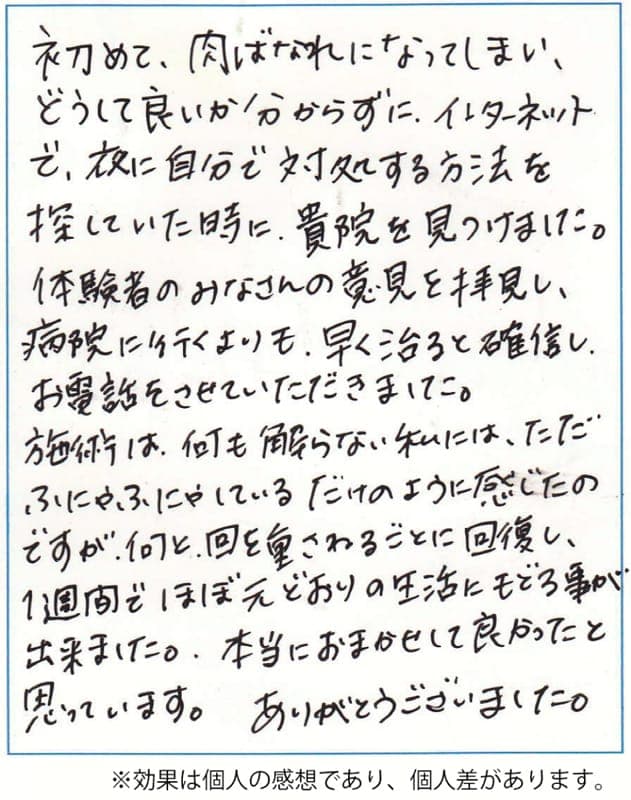 初めて、肉ばなれになってしまい、
どうして良いか分からずに、インターネット
で、夜に自分で対処する方法を
探していた時に、貴院を見つけました。
体験者のみなさんの意見を拝見し、
病院に行くよりも、早く治ると確信し、
お電話をさせていただきました。
施術は、何も解らない私には、ただ
ふにゃふにゃしているだけのように感じたの
ですが、何と、回を重さねるごとに回復し、
1週間でほぼ元どおりの生活にもどる事が
出来ました。本当におまかせして良かったと
思っています。 ありがとうございました。
※効果は個人の感想であり、個人差があります。